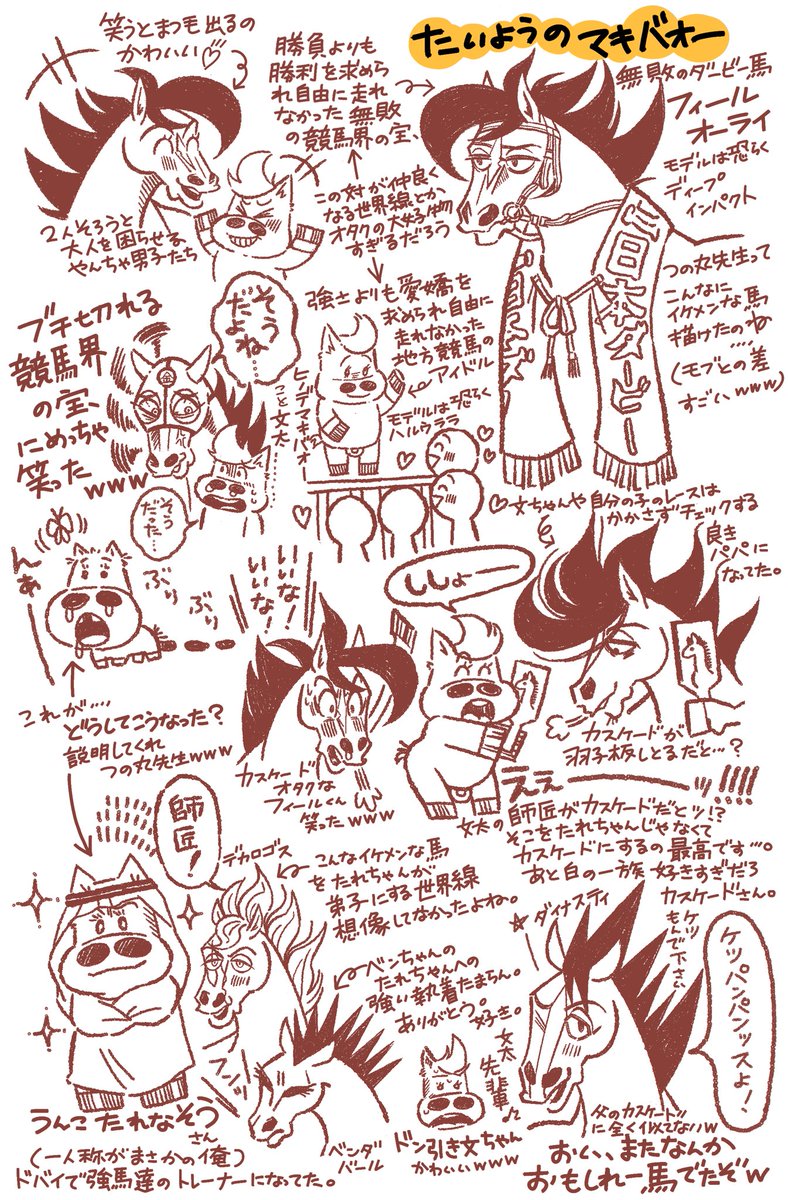 たいようのマキバオー
笑うとまつ毛出るの
かわいい♡
勝負よりも
勝利を求めら
れ自由に走れ
なかった無敗
の競馬界の宝、
無敗のダービー馬
フィール
オーライ
モデルは恐らく
ディープ
インパクト
2人そろうと
大人を困らせる
やんちゃ男子たち
この対が仲良く
なる世界線とか
オタクの大好物
すぎるだろう
日本ダービー
つの丸先生って
こんなに
イケメンな馬
描けたのね
....
(モブとの差
すごいwww)
ブチ切れる
競馬界
の宝、
にめっちゃ
笑ったwww
そう
だよね…
そう
だった…
強さよりも愛嬌を
求められ自由に
走れなかった
地方競馬の
アイドル
ヒノデマキバオー
こと文太
モデルは恐らく
ハルウララ
♡文ちゃんや自分の子のレースは
かかさずチェックする
良き
パパに
なってた。
んあ
ぶり
ぶり
いいな!
いいな!
ししょー
これが....
どうしてこうなった?
説明してくれ
つの丸先生www
カスケード
オタクな
フィールくん
笑ったwww
カスケードが
羽子板しとるだと…?
ええーッ!!!!
文太の師匠がカスケードだとッ!?
そこをたれちゃんじゃなくて
カスケードにするの最高です…。
あと白の一族好きすぎだろ
カスケードさん。
師匠!
デカロゴス
こんなイケメンな馬
をたれちゃんが
弟子にする世界線
想像してなかったよね。
ベンちゃんの
たれちゃんへの
強い執着たまらん。
ありがとう。
好き。
☆ダイナスティ
ケツ
もんで下さい
ケツパンパンッスよ!
フンッ
文太
先輩♪
うんこたれなぞうさん
(一人称がまさかの俺)
ドバイで強馬達のトレーナーになってた。
ベンダ
バール
ドン引き文ちゃん
かわいいwww
父のカスケードに
全く似てないw
おい、またなんか
おもしれー馬でたぞw